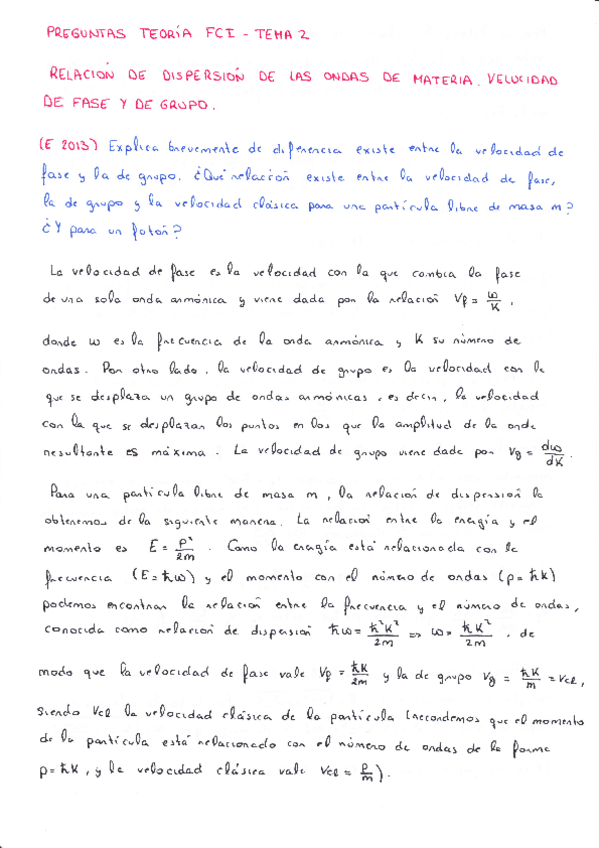 PREGUNTAS TEORÍA FCI - TEMA 2
RELACIÓN DE DISPERSIÓN DE LAS ONDAS DE MATERIA. VELOCIDAD
DE FASE Y DE GRUPO.
(E 2013) Explica brevemente de diferencia existe entre la velocidad de
fase y la de grupo. ¿Qué relación existe entre la velocidad de fase,
la de grupo y la velocidad clásica para una partícula libre de masa m?
¿Y para un fotón?
La velocidad de fase es la velocidad con la que cambia la fase
de una sola onda armónica y viene dada por la relación Vf = ω/K ,
donde ω es la frecuencia de la onda armónica y K su número de
ondas. Por otro lado, la velocidad de grupo es la velocidad con la
que se desplaza un grupo de ondas armónicas, es decir, la velocidad
con la que se desplazan los puntos en los que la amplitud de la onda
resultante es máxima. La velocidad de grupo viene dada por Vg = dω/dK .
Para una partícula libre de masa m, la relación de dispersión la
obtenemos de la siguiente manera. La relación entre la energía y el
momento es E = p²/2m . Como la energía está relacionada con la
frecuencia (E = ħω) y el momento con el número de ondas (p = ħk)
podemos encontrar la relación entre la frecuencia y el número de ondas,
conocida como relación de dispersión ħω = ħ²K²/2m => ω = ħK²/2m , de
modo que la velocidad de fase vale Vf = ħK/2m y la de grupo Vg = ħK/m = Vcl,
siendo Vcl la velocidad clásica de la partícula (recordemos que el momento
de la partícula está relacionado con el número de ondas de la forma
p = ħK, y la velocidad clásica vale Vcl = p/m).